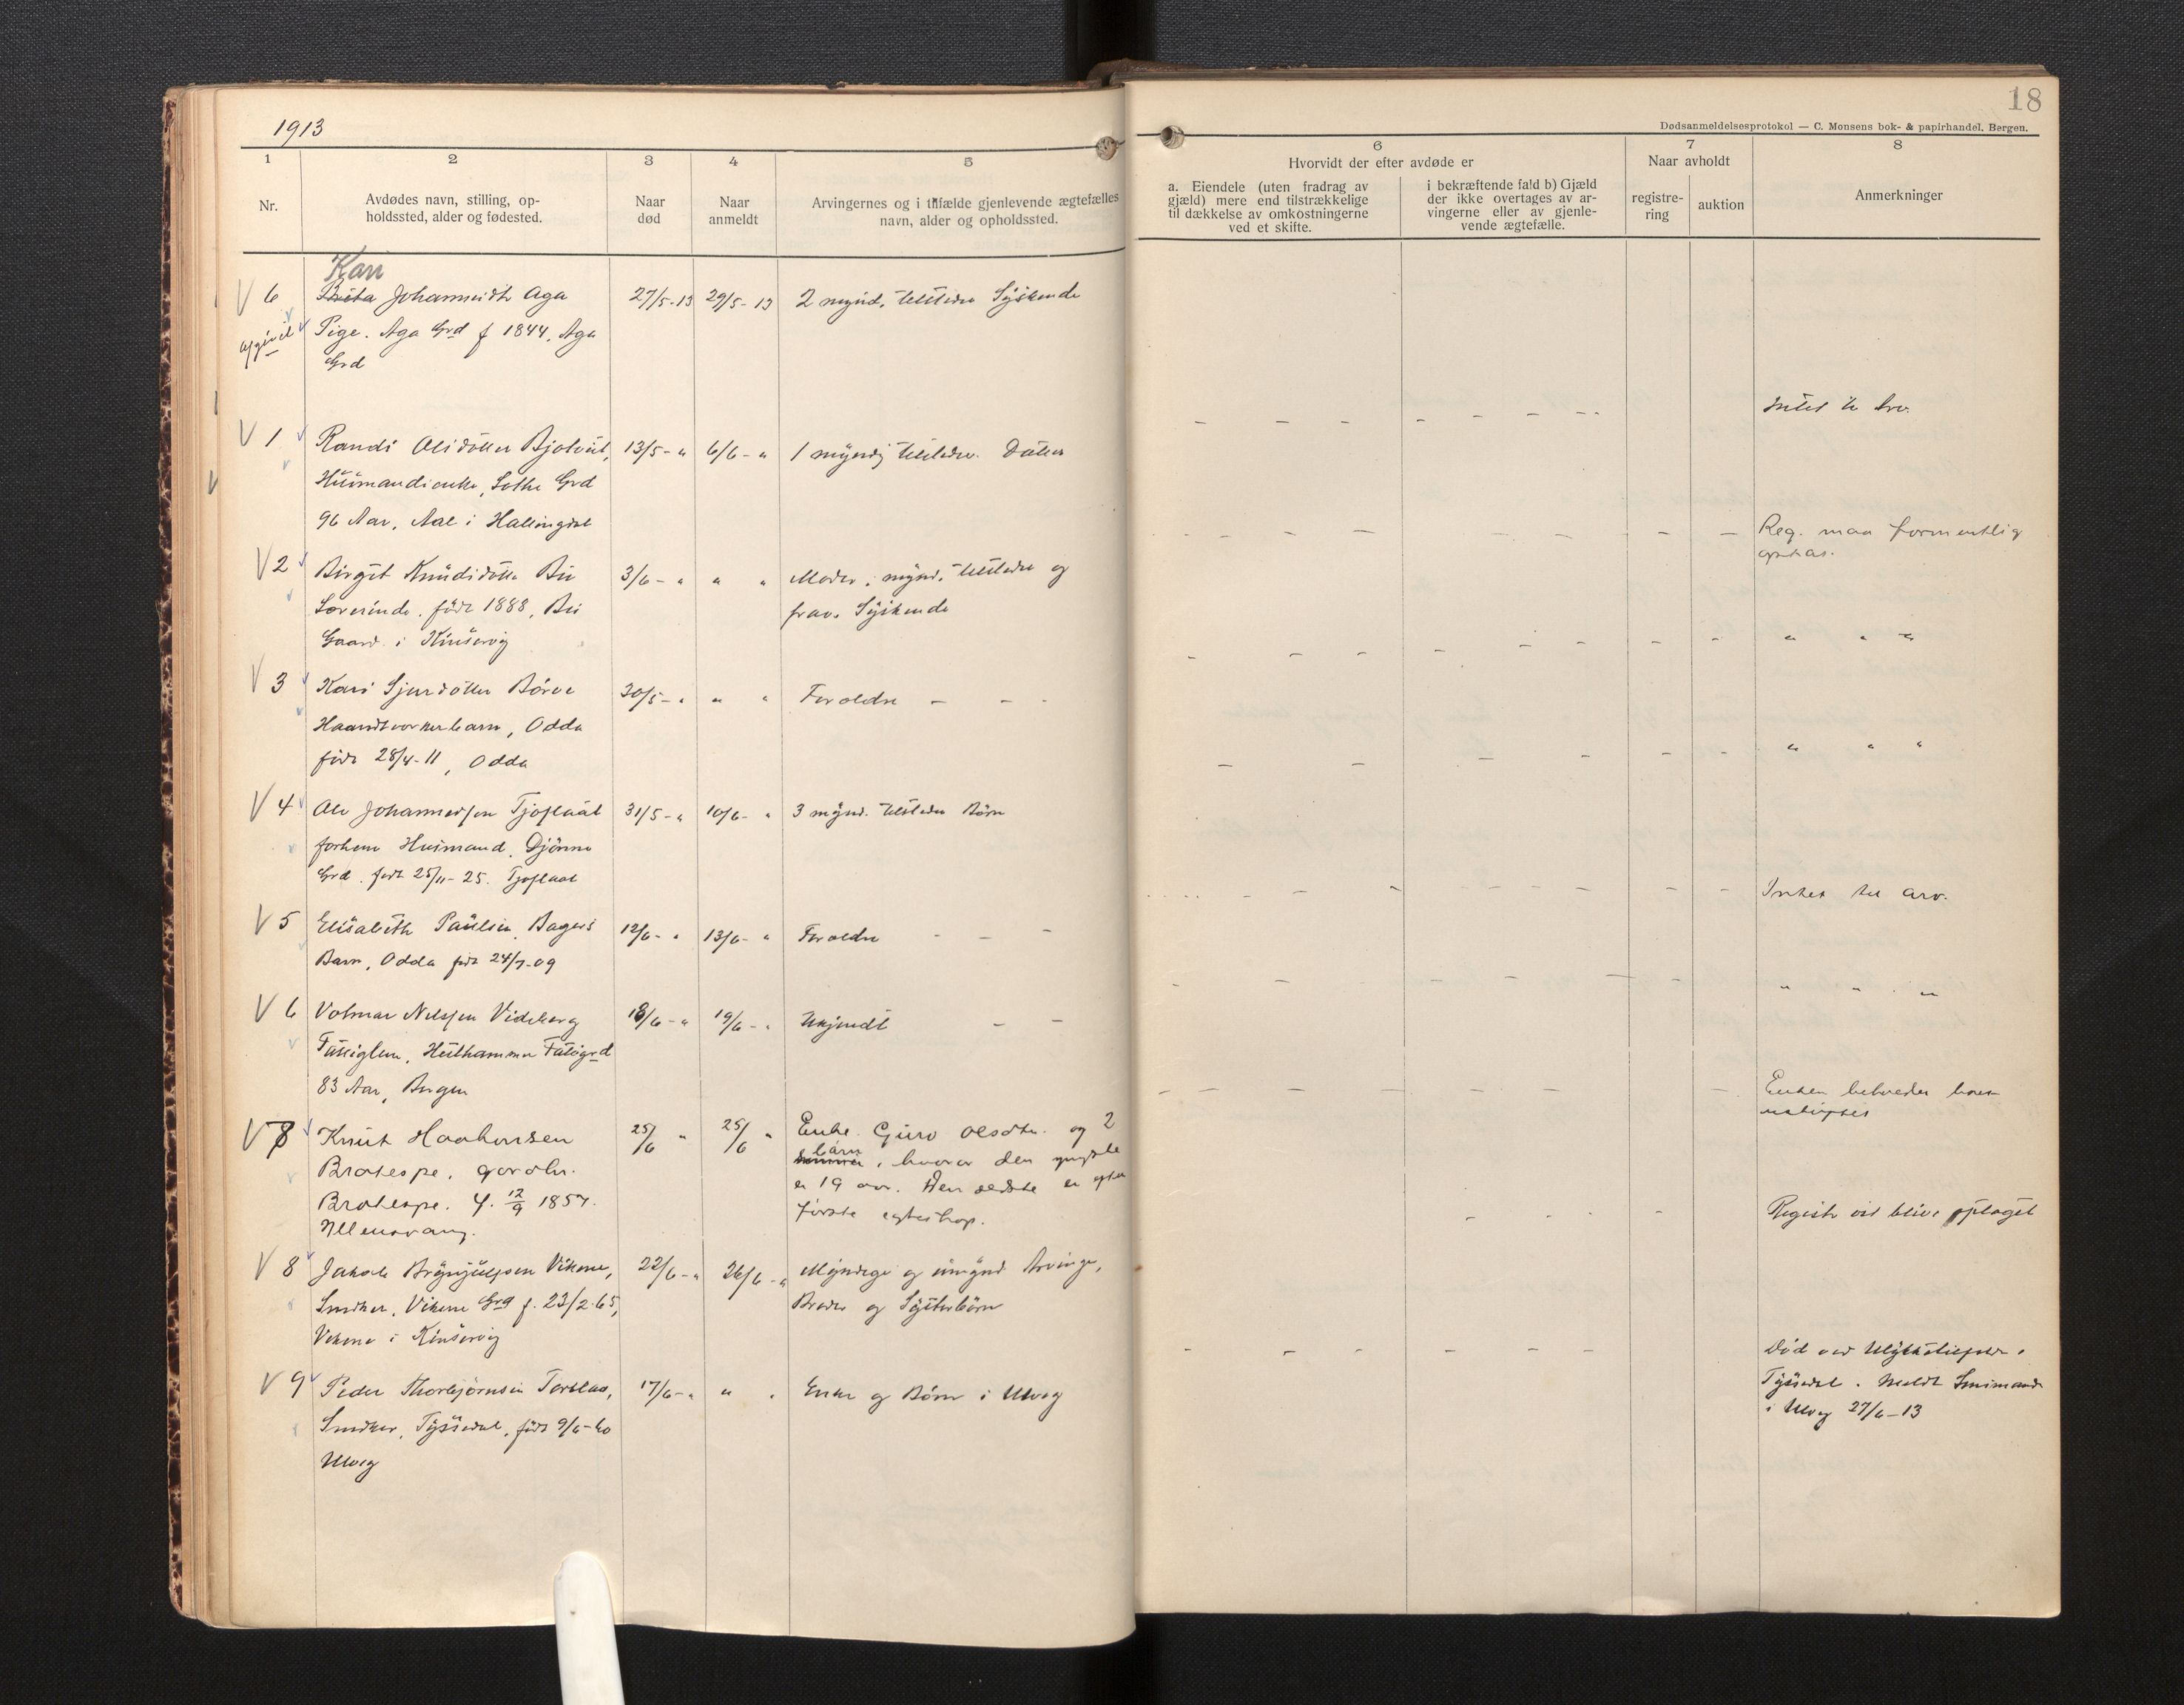 1913
18
Dødsanmeldelsesprotokol — C. Monsens bok- & papirhandel. Bergen.
1
2
3
4
5
6
7
8
Nr.
Avdødes navn, stilling, op-
holdssted, alder og fødested.
Naar
død
Naar
anmeldt
Arvingernes og i tilfælde gjenlevende ægtefælles
navn, alder og opholdssted.
Hvorvidt der efter avdøde er
a. Eiendele (uten fradrag av
gjæld) mere end tilstrækkelige
til dækkelse av omkostningerne
ved et skifte.
i bekræftende fald b) Gjæld
der ikke overtages av ar-
vingerne eller av gjenle-
vende ægtefælle.
Naar avholdt
registre-
ring
auktion
Anmerkninger
Kari
V 6 Brita Johannesdtr Aga 27/5-13 29/5-13 2 mynd. tilstedev Syskende
Pige. Aga Grd f 1844, Aga
Grd
Intet til Arv.
V 1 Randi Olsdotter 13/5- " 6/6- " 1 myndig tilstedev. Datter
Husmandsenke, Lothe Grd
96 Aar, Aal i Hallingdal
Reg. maa formentlig
opstaa.
V 2 Birgit Knudsdotter Bu 3/6- " " " Moder, mynd. tilstedev og
Lærerinde, født 1888, Bu frav. Syskende
Gaard i Kinservig
" " "
V 3 Kari Sjursdotter Børve 30/5- " " " Forældre - - -
Haandtverkerbarn, Odda
født 28/4-11, Odda
" " "
V 4 Ole Johannessen Tjoflaat 31/5- " 10/6- " 3 mynd. tilstedev Børn
forhenv Husmand, Djønne
Grd. født 25/11-25. Tjoflaat
Intet til arv.
V 5 Elisabeth Paulsen Bagers 12/6- " 13/6- " Forældre - - -
Barn, Odda født 24/7-09
" " "
V 6 Volmar Nelssen Videberg 18/6- " 19/6- " Ukjendt - -
Fattiglem, Helthammer Fatigrd
83 Aar, Bergen
Enken beholder boet
uskiftet
V 8 Knut Haakonsen 25/6 " 25/6 " Enke Guro Olsdtr. og 2
Bratespe, gardbr. børn, hvorav den yngste
Bratespe. f. 12/9 1857. er 19 aar. Den ældste er efter
Ullensvang. første egteskap.
Registr vil blive optaget
V 8 Jakob Brynjulfsen Vikene, 22/6- " 26/6- " Myndige og umynd Arvinge,
Snedker, Vikene Grd f. 23/2-65, Brødre og Søsterbørn
Vikene i Kinservig
Død ved Ulykkestilfælde i
Tyssedal. Meldt Lensmand
i Ulvig 27/6-13
V 9 Peder Thorbjørnsen 17/6- " " " Enke og Børn i Ulvig
Snedker, Tyssedal, født 9/6-60
Ulvig